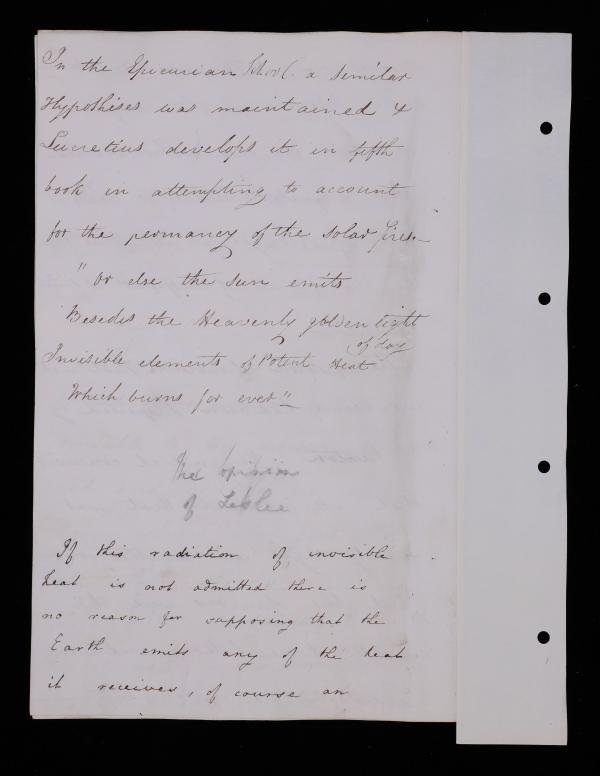 In the Epicurian School a similar
Hypothises was maintained &
Lucretius develops it in fifth
book in attempting to account
for the permancy of the solar fires—
" Or else the sun emits
Besedes the Heavenly golden light
of day
Invisible elements of Potent Heat
Which burns for ever"
The opinion
of Leslie
If this radiation of invisible
heat is not admitted there is
no reason for supposing that the
Earth emits any of the heat
it receives, of course an